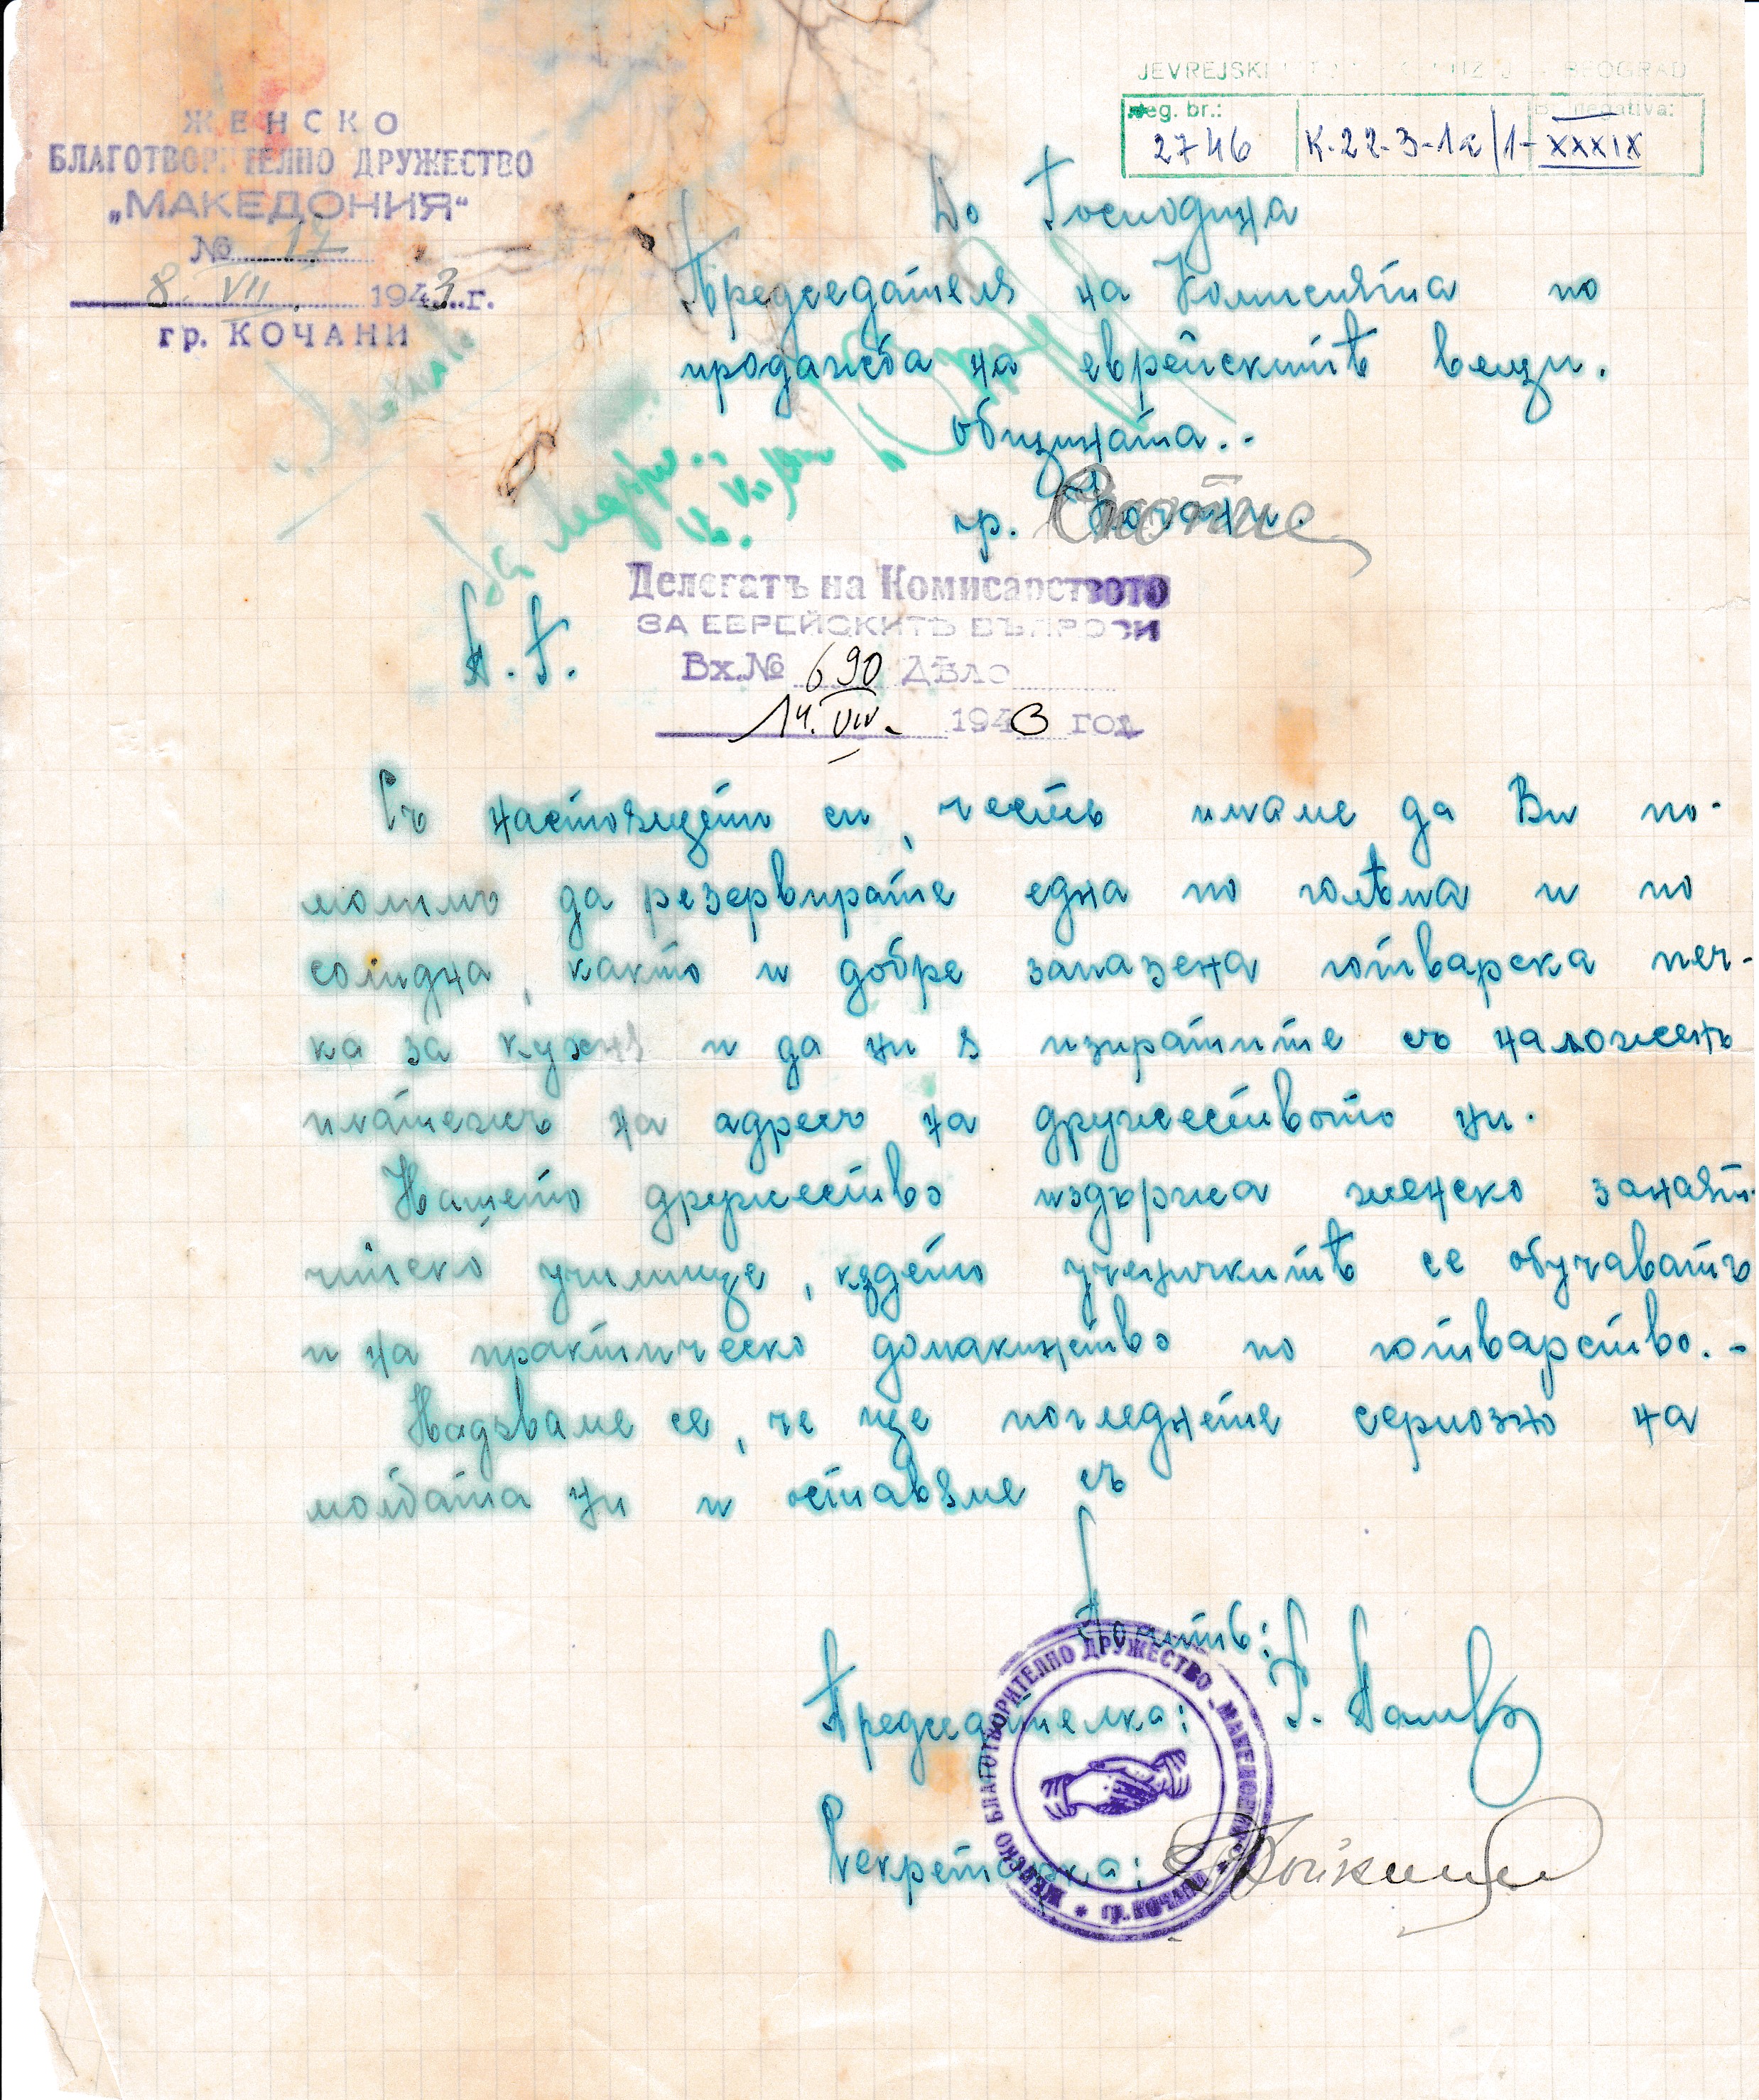 JEVREJSKI BEOGRAD
Reg. br.: Br. negativa:
2746 K-22-3-1a/1- XXXIX
ЖЕНСКО
БЛАГОТВОРИТЕЛНО ДРУЖЕСТВО
„МАКЕДОНИЯ“
№ 17
8. VII. 1943 г.
гр. КОЧАНИ
До Господина
Председателя на Комисията по
продажба на еврейскитѣ вещи.
общината..
гр. Скопие
Делегатъ на Комисарството
ЗА ЕВРЕЙСКИТѢ ВЪПРОСИ
Вх.№ 690 Дѣло
14. VII. 1943 год.
П. Г.
Съ настоящето си, честь имаме да Ви по-
молимъ да резервирате една по голѣма и по
солидна, както и добре запазена готварска печ-
ка за кухня и да ни я изпратите съ наложенъ
платежъ на адресъ на дружеството ни.
Нашето дружество издържа женско занаят-
чийско училище, кѫдето ученичкитѣ се обучаватъ
и на практическо домакинство по готварство.-
Надѣваме се, че ще погледнете сериозно на
молбата ни и оставяме съ
Почить:
Председателка:
Секретарка:
ЖЕНСКО БЛАГОТВОРИТЕЛНО ДРУЖЕСТВО „МАКЕДОНИЯ“ * гр. КОЧАНИ *